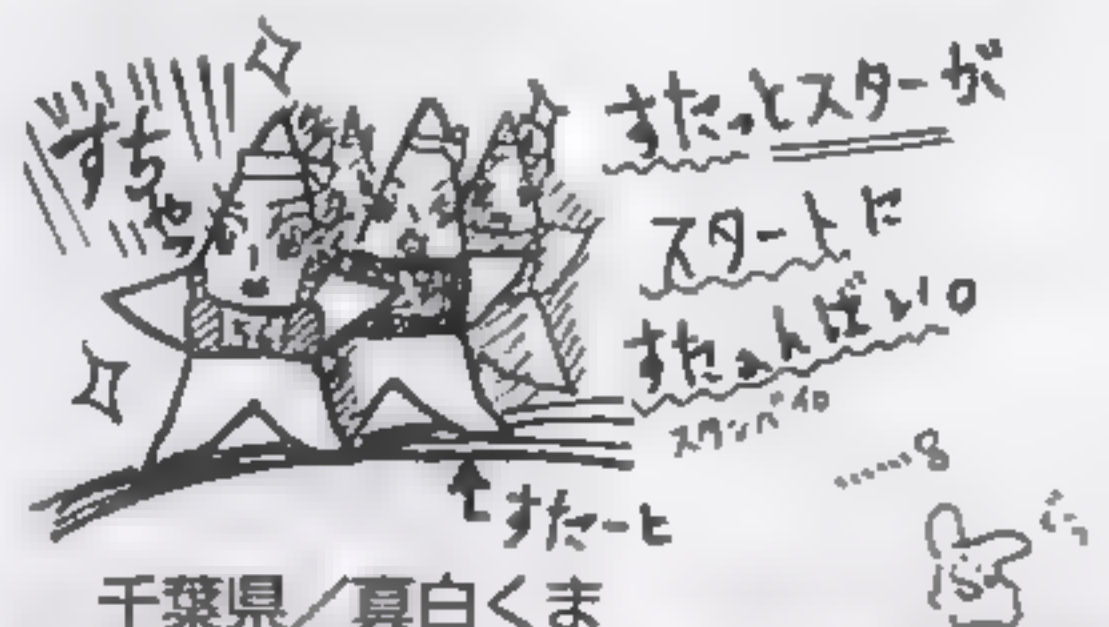 すちゃ
すたっとスターが
スタートに
すたぁんばい。
スタンバイ。
すたーと
千葉県／真白くま